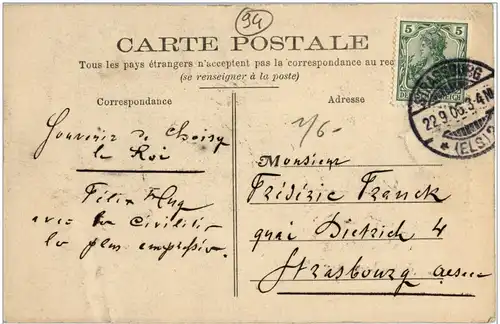 94
CARTE POSTALE
Tous les pays étrangers n'acceptent pas la correspondance au
(se renseigner à la poste)
Correspondance
Adresse
5 5
REICH
STRASSBURG
22.9.06.3-4N
* (ELS)
Souvenir de Choisy
le Roi
Félix Hug
avec les civilités
les plus empressées.
1/6-
Monsieur
Frédéric Franck
quai Dietrich 4
Strasbourg